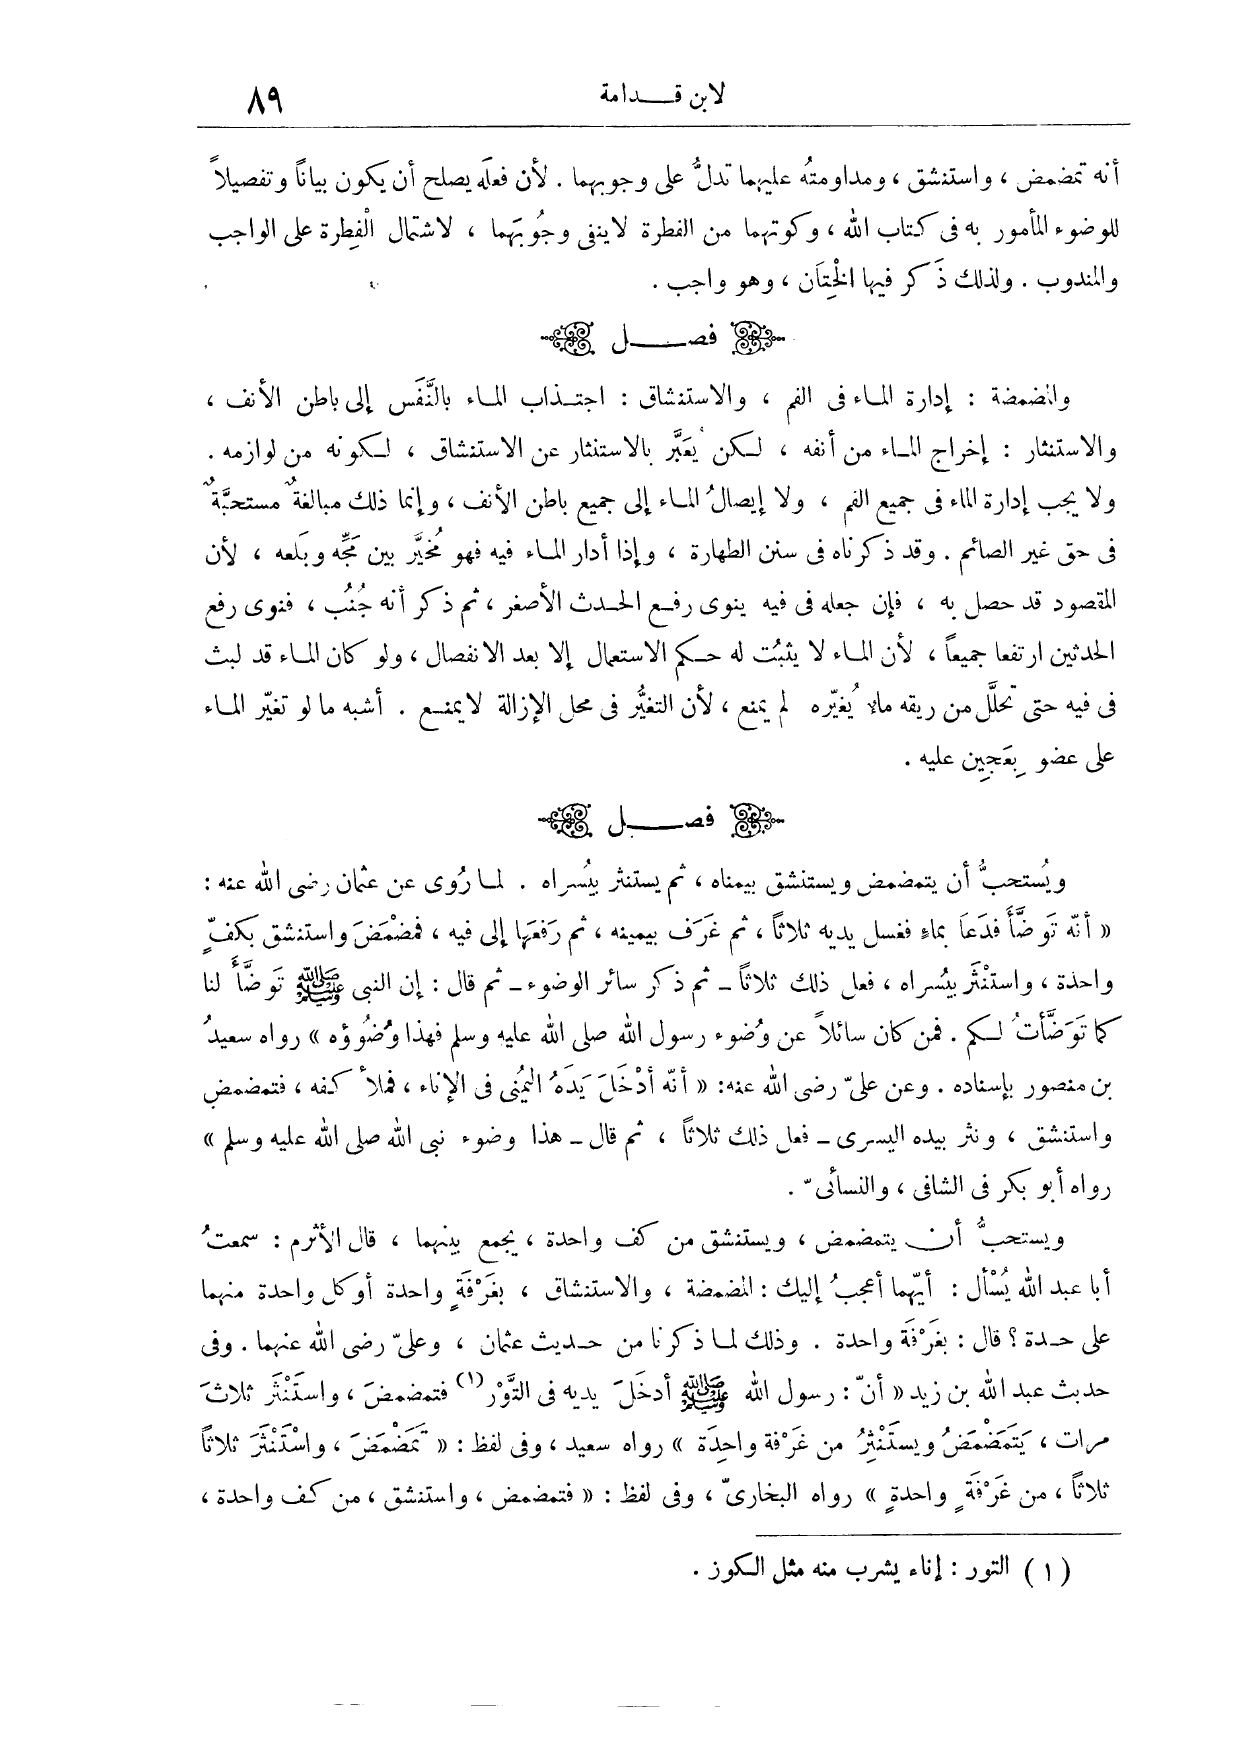 لابن قـــدامة ٨٩
أنه تمضمض ، واستنشق ، ومداومتُه عليهما تدلُّ على وجوبهما . لأن فعلَه يصلح أن يكون بيانًا وتفصيلاً
للوضوء المأمور به فى كتاب الله ، وكونهما من الفطرة لا ينفى وجُوبَهما ، لاشتمال الْفِطرة على الواجب
والمندوب . ولذلك ذَكر فيها الخِتَان ، وهو واجب .
فصـــــل
والمضمضة : إدارة المـاء فى الفم ، والاستنشاق : اجتـذاب المـاء بالنَّفَس إلى باطن الأنف ،
والاستنثار : إخراج المـاء من أنفه ، لـكن يُعَبَّر بالاستنثار عن الاستنشاق ، لـكونه من لوازمه .
ولا يجب إدارة الماء فى جميع الفم ، ولا إيصالُ المـاء إلى جميع باطن الأنف ، وإنما ذلك مبالغةٌ مستحبَّةٌ
فى حق غير الصائم . وقد ذكرناه فى سنن الطهارة ، وإذا أدار المـاء فيه فهو مُخيَّر بين مَجِّه وبَلعه ، لأن
المقصود قد حصل به ، فإن جعله فى فيه ينوى رفـع الحـدث الأصغر ، ثم ذكر أنه جُنُب ، فنوى رفع
الحدثين ارتفعا جميعاً ، لأن المـاء لا يثبُت له حـكم الاستعمال إلا بعد الانفصال ، ولو كان المـاء قد لبث
فى فيه حتى تحلَّل من ريقه ماء يُغيّره لم يمنع ، لأن التغيُّر فى محل الإزالة لا يمنـع . أشبه ما لو تغيّر المـاء
على عضو بِعَجِين عليه .
فصـــــل
ويُستحبُّ أن يتمضمض ويستنشق بيمناه ، ثم يستنثر بيُسراه . لمـا رُوى عن عثمان رضى الله عنه :
« أنّه تَوضَّأَ فدَعَا بماء فغسل يديه ثلاثاً ، ثم غَرَف بيمينه ، ثم رَفعَها إلى فيه ، فمضْمَضَ واستنشق بكفّ
واحدة ، واستنْثَر بيُسراه ، فعل ذلك ثلاثاً ـ ثم ذكر سائر الوضوء ـ ثم قال : إن النبى ﷺ تَوضَّأَ لنا
كما تَوَضَّأتُ لـكم . فمن كان سائلاً عن وُضوء رسول الله صلى الله عليه وسلم فهذا وُضُوؤه » رواه سعيدُ
بن منصور بإسناده . وعن علىّ رضى الله عنه: « أنّه أدْخَلَ يَدَهُ اليُمْنى فى الإناء ، فملأ كفه ، فتمضمض
واستنشق ، ونثر بيده اليسرى ـ فعل ذلك ثلاثاً ، ثم قال ـ هذا وضوء نبى الله صلى الله عليه وسلم »
رواه أبو بكر فى الشافى ، والنسأنىّ .
ويستحبُّ أن يتمضمض ، ويستنشق من كف واحدة ، يجمع بينهما ، قال الأثرم : سمعتُ
أبا عبد الله يُسْأل : أيّهما أعجبُ إليك : المضمضة ، والاستنشاق ، بغَرْفَةٍ واحدة أو كل واحدة منهما
على حـدة ؟ قال : بغَرْفَة واحدة . وذلك لمـا ذكرنا من حـديث عثمان ، وعلىّ رضى الله عنهما . وفى
حديث عبد الله بن زيد « أنّ : رسول الله ﷺ أدخَلَ يديه فى التَّوْر(١) فتمضمضَ ، واستَنْثَر ثلاثَ
مرات ، يَتمَضْمَضُ ويستَنْثِرُ من غَرْفة واحِدَة » رواه سعيد ، وفى لفظ : « تَمَضْمَضَ ، واسْتَنْثَرَ ثلاثاً
ثلاثاً ، من غَرْفَةٍ واحدةٍ » رواه البخارىّ ، وفى لفظ : « فتمضمض ، واستنشق ، من كف واحدة ،
( ١ ) التور : إناء يشرب منه مثل الـكوز .